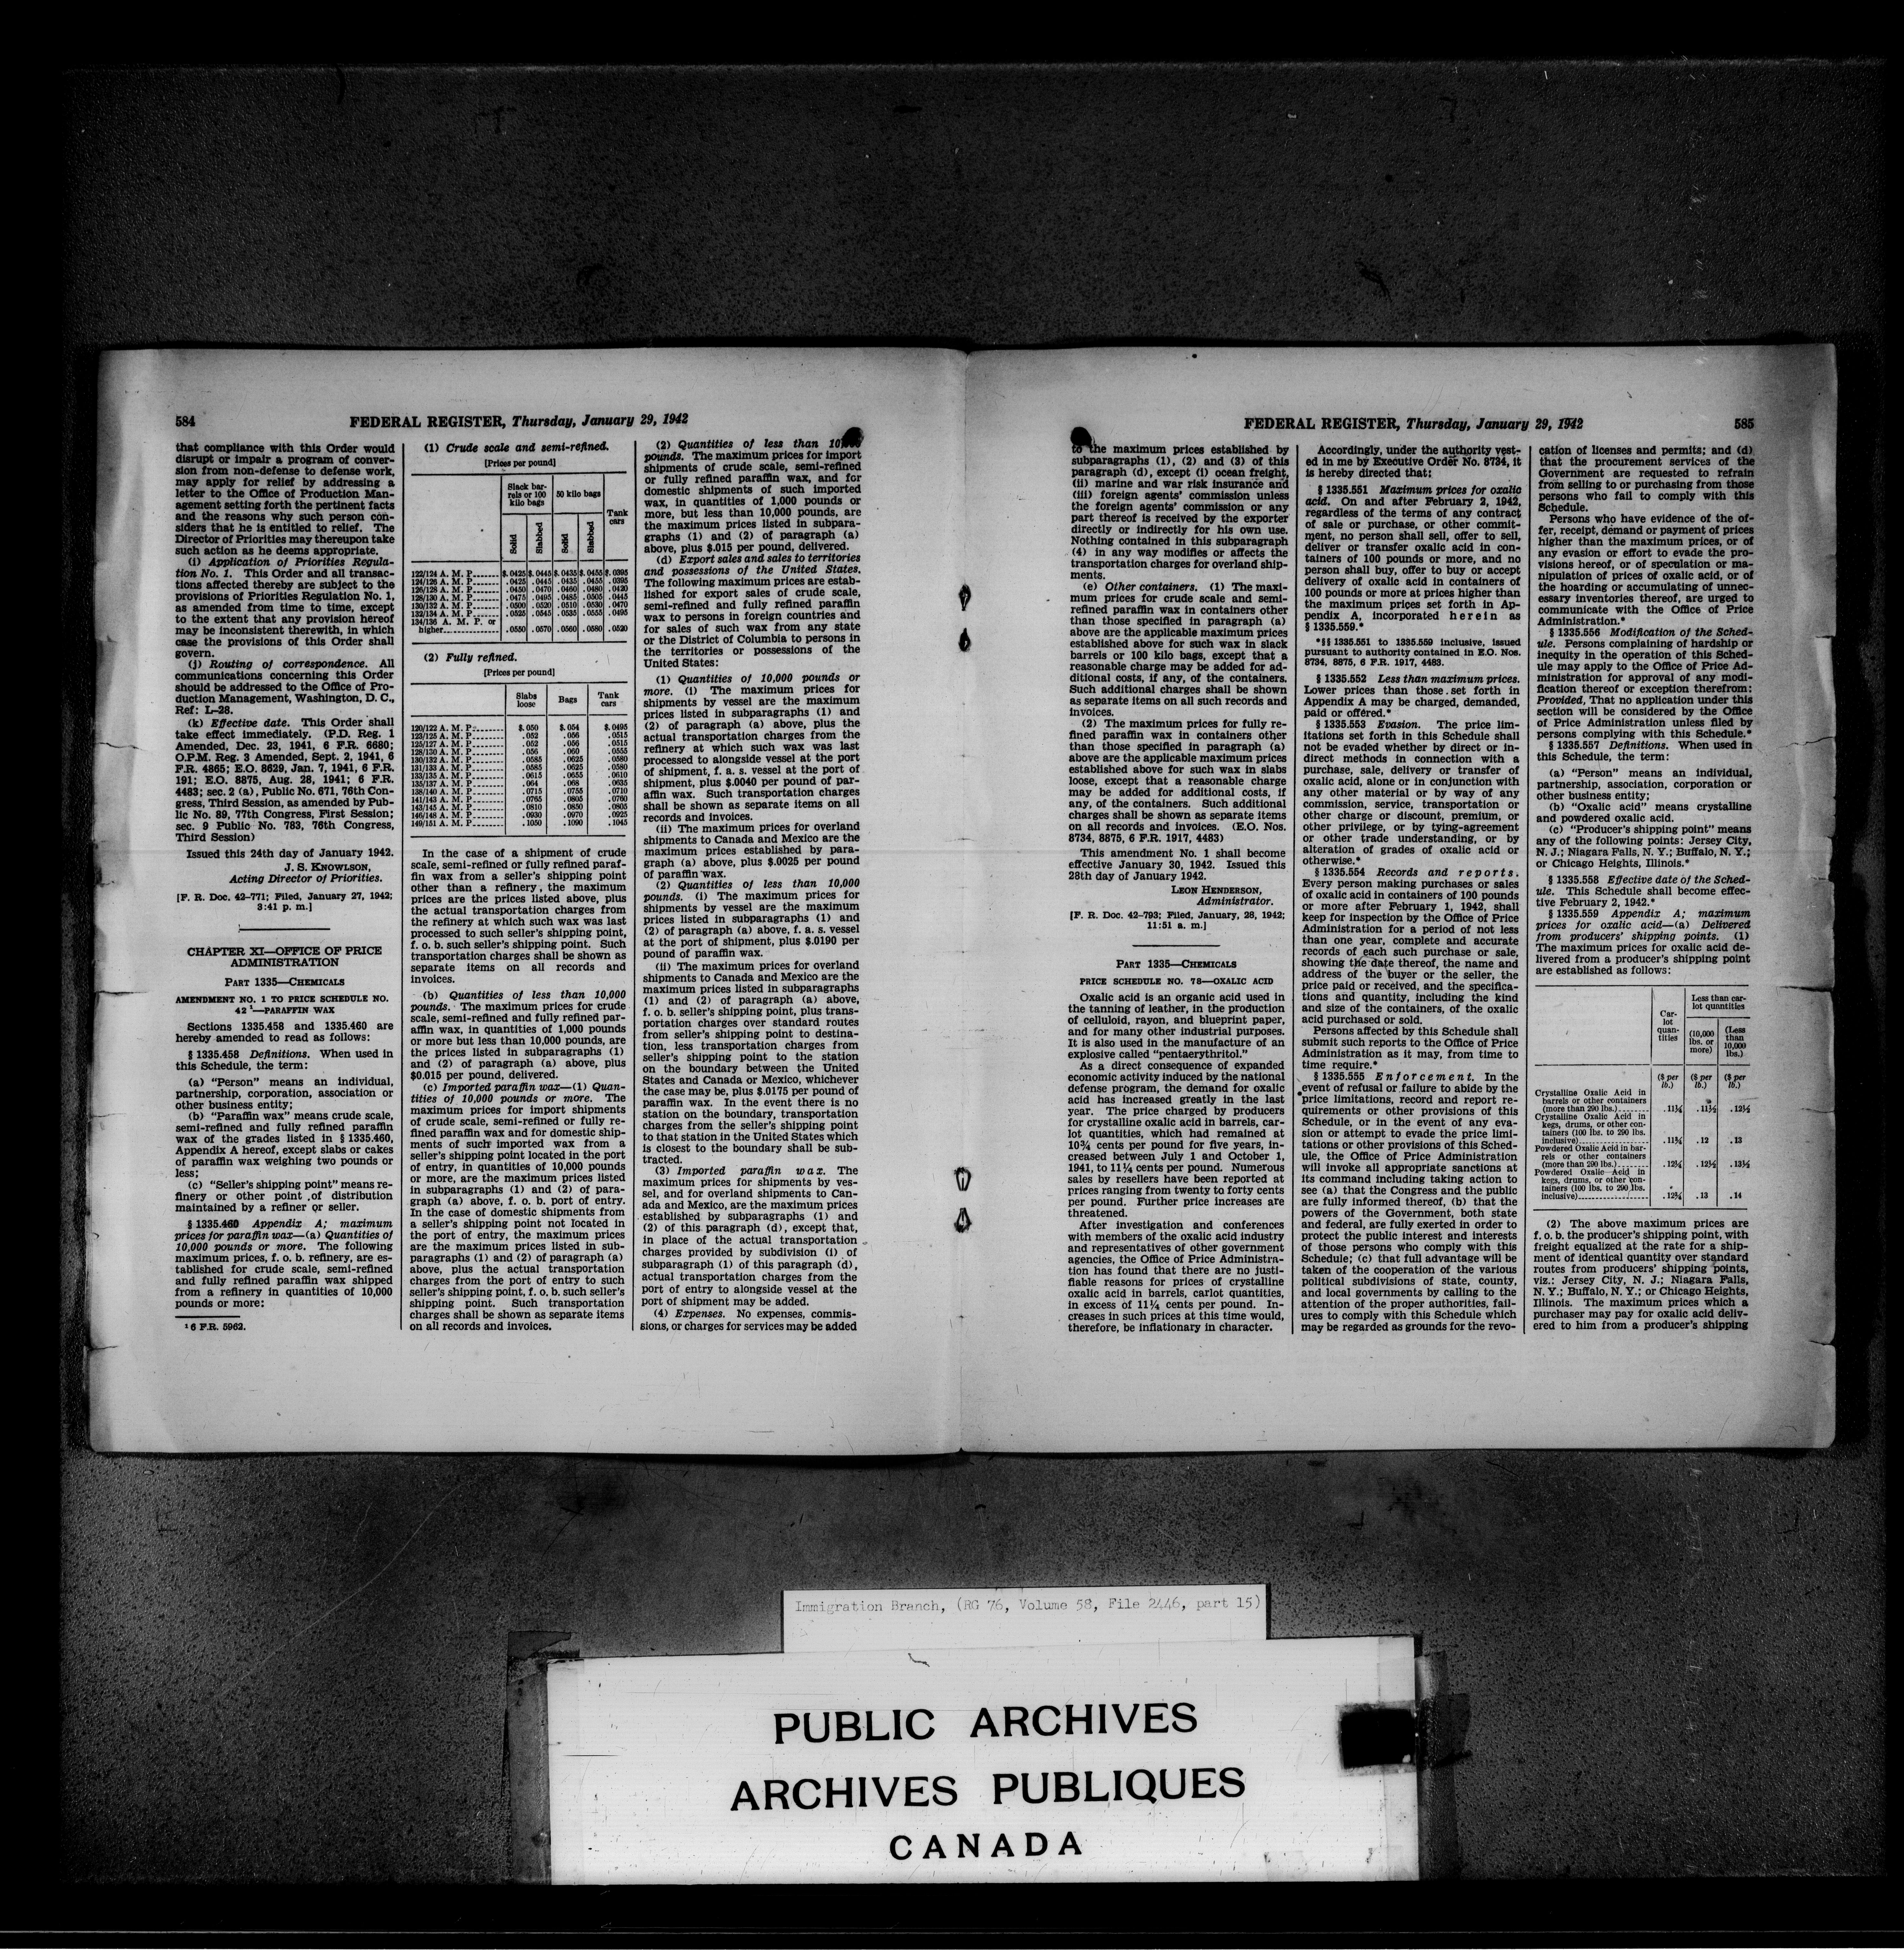 584
FEDERAL REGISTER, Thursday, January 29, 1942
that compliance with this Order would
disrupt or impair a program of conver-
sion from non-defense to defense work,
may apply for relief by addressing a
letter to the Office of Production Man-
agement setting forth the pertinent facts
and the reasons why such person con-
siders that he is entitled to relief. The
Director of Priorities may thereupon take
such action as he deems appropriate.
(i) Application of Priorities Regula-
tion No. 1. This Order and all transac-
tions affected thereby are subject to the
provisions of Priorities Regulation No. 1,
as amended from time to time, except
to the extent that any provision hereof
may be inconsistent therewith, in which
case the provisions of this Order shall
govern.
(j) Routing of correspondence. All
communications concerning this Order
should be addressed to the Office of Pro-
duction Management, Washington, D. C.,
Ref: L-28.
(k) Effective date. This Order shall
take effect immediately. (P.D. Reg. 1
Amended, Dec. 23, 1941, 6 F.R. 6680;
O.P.M. Reg. 3 Amended, Sept. 2, 1941, 6
F.R. 4865; E.O. 8629, Jan. 7, 1941, 6 F.R.
191; E.O. 8875, Aug. 28, 1941; 6 F.R.
4483; sec. 2 (a), Public No. 671, 76th Con-
gress, Third Session, as amended by Pub-
lic No. 89, 77th Congress, First Session;
sec. 9 Public No. 783, 76th Congress,
Third Session)
Issued this 24th day of January 1942.
J. S. KNOWLSON,
Acting Director of Priorities.
[F. R. Doc. 42-771; Filed, January 27, 1942;
3:41 p. m.]
CHAPTER XI—OFFICE OF PRICE
ADMINISTRATION
PART 1335—CHEMICALS
AMENDMENT NO. 1 TO PRICE SCHEDULE NO.
42 ¹—PARAFFIN WAX
Sections 1335.458 and 1335.460 are
hereby amended to read as follows:
§ 1335.458 Definitions. When used in
this Schedule, the term:
(a) "Person" means an individual,
partnership, corporation, association or
other business entity;
(b) "Paraffin wax" means crude scale,
semi-refined and fully refined paraffin
wax of the grades listed in § 1335.460,
Appendix A hereof, except slabs or cakes
of paraffin wax weighing two pounds or
less;
(c) "Seller's shipping point" means re-
finery or other point of distribution
maintained by a refiner or seller.
§ 1335.460 Appendix A; maximum
prices for paraffin wax—(a) Quantities of
10,000 pounds or more. The following
maximum prices, f. o. b. refinery, are es-
tablished for crude scale, semi-refined
and fully refined paraffin wax shipped
from a refinery in quantities of 10,000
pounds or more:
¹ 6 F.R. 5962.
(1) Crude scale and semi-refined.
[Prices per pound]
Slack bar-
rels or 100
kilo bags
50 kilo bags
Tank
cars
Solid
Slabbed
Solid
Slabbed
122/124 A. M. P. $.0425 $.0445 $.0435 $.0455 $.0395
124/126 A. M. P. .0425 .0445 .0435 .0455 .0395
126/128 A. M. P. .0450 .0470 .0460 .0480 .0420
128/130 A. M. P. .0475 .0495 .0485 .0505 .0445
130/132 A. M. P. .0500 .0520 .0510 .0530 .0470
132/134 A. M. P. .0525 .0545 .0535 .0555 .0495
134/136 A. M. P. or
higher .0550 .0570 .0560 .0580 .0520
(2) Fully refined.
[Prices per pound]
Slabs
loose
Bags
Tank
cars
120/122 A. M. P. $.050 $.054 $.0495
123/125 A. M. P. .052 .056 .0515
125/127 A. M. P. .052 .056 .0515
128/130 A. M. P. .056 .060 .0555
130/132 A. M. P. .0585 .0625 .0580
131/133 A. M. P. .0585 .0625 .0580
133/135 A. M. P. .0615 .0655 .0610
135/137 A. M. P. .064 .068 .0635
138/140 A. M. P. .0715 .0755 .0710
141/143 A. M. P. .0765 .0805 .0760
143/145 A. M. P. .0810 .0850 .0805
146/148 A. M. P. .0930 .0970 .0925
149/151 A. M. P. .1050 .1090 .1045
In the case of a shipment of crude
scale, semi-refined or fully refined paraf-
fin wax from a seller's shipping point
other than a refinery, the maximum
prices are the prices listed above, plus
the actual transportation charges from
the refinery at which such wax was last
processed to such seller's shipping point,
f. o. b. such seller's shipping point. Such
transportation charges shall be shown as
separate items on all records and
invoices.
(b) Quantities of less than 10,000
pounds. The maximum prices for crude
scale, semi-refined and fully refined par-
affin wax, in quantities of 1,000 pounds
or more but less than 10,000 pounds, are
the prices listed in subparagraphs (1)
and (2) of paragraph (a) above, plus
$0.015 per pound, delivered.
(c) Imported paraffin wax—(1) Quan-
tities of 10,000 pounds or more. The
maximum prices for import shipments
of crude scale, semi-refined or fully re-
fined paraffin wax and for domestic ship-
ments of such imported wax from a
seller's shipping point located in the port
of entry, in quantities of 10,000 pounds
or more, are the maximum prices listed
in subparagraphs (1) and (2) of para-
graph (a) above, f. o. b. port of entry.
In the case of domestic shipments from
a seller's shipping point not located in
the port of entry, the maximum prices
are the maximum prices listed in sub-
paragraphs (1) and (2) of paragraph (a)
above, plus the actual transportation
charges from the port of entry to such
seller's shipping point, f. o. b. such seller's
shipping point. Such transportation
charges shall be shown as separate items
on all records and invoices.
(2) Quantities of less than 10,000
pounds. The maximum prices for import
shipments of crude scale, semi-refined
or fully refined paraffin wax, and for
domestic shipments of such imported
wax, in quantities of 1,000 pounds or
more, but less than 10,000 pounds, are
the maximum prices listed in subpara-
graphs (1) and (2) of paragraph (a)
above, plus $.015 per pound, delivered.
(d) Export sales and sales to territories
and possessions of the United States.
The following maximum prices are estab-
lished for export sales of crude scale,
semi-refined and fully refined paraffin
wax to persons in foreign countries and
for sales of such wax from any state
or the District of Columbia to persons in
the territories or possessions of the
United States:
(1) Quantities of 10,000 pounds or
more. (i) The maximum prices for
shipments by vessel are the maximum
prices listed in subparagraphs (1) and
(2) of paragraph (a) above, plus the
actual transportation charges from the
refinery at which such wax was last
processed to alongside vessel at the port
of shipment, f. a. s. vessel at the port of
shipment, plus $.0040 per pound of par-
affin wax. Such transportation charges
shall be shown as separate items on all
records and invoices.
(ii) The maximum prices for overland
shipments to Canada and Mexico are the
maximum prices established by para-
graph (a) above, plus $.0025 per pound
of paraffin wax.
(2) Quantities of less than 10,000
pounds. (i) The maximum prices for
shipments by vessel are the maximum
prices listed in subparagraphs (1) and
(2) of paragraph (a) above, f. a. s. vessel
at the port of shipment, plus $.0190 per
pound of paraffin wax.
(ii) The maximum prices for overland
shipments to Canada and Mexico are the
maximum prices listed in subparagraphs
(1) and (2) of paragraph (a) above,
f. o. b. seller's shipping point, plus trans-
portation charges over standard routes
from seller's shipping point to destina-
tion, less transportation charges from
seller's shipping point to the station
on the boundary between the United
States and Canada or Mexico, whichever
the case may be, plus $.0175 per pound of
paraffin wax. In the event there is no
station on the boundary, transportation
charges from the seller's shipping point
to that station in the United States which
is closest to the boundary shall be sub-
tracted.
(3) Imported paraffin wax. The
maximum prices for shipments by ves-
sel, and for overland shipments to Can-
ada and Mexico, are the maximum prices
established by subparagraphs (1) and
(2) of this paragraph (d), except that,
in place of the actual transportation
charges provided by subdivision (i) of
subparagraph (1) of this paragraph (d),
actual transportation charges from the
port of entry to alongside vessel at the
port of shipment may be added.
(4) Expenses. No expenses, commis-
sions, or charges for services may be added
FEDERAL REGISTER, Thursday, January 29, 1942
585
to the maximum prices established by
subparagraphs (1), (2) and (3) of this
paragraph (d), except (i) ocean freight,
(ii) marine and war risk insurance and
(iii) foreign agents' commission unless
the foreign agents' commission or any
part thereof is received by the exporter
directly or indirectly for his own use.
Nothing contained in this subparagraph
(4) in any way modifies or affects the
transportation charges for overland ship-
ments.
(e) Other containers. (1) The maxi-
mum prices for crude scale and semi-
refined paraffin wax in containers other
than those specified in paragraph (a)
above are the applicable maximum prices
established above for such wax in slack
barrels or 100 kilo bags, except that a
reasonable charge may be added for ad-
ditional costs, if any, of the containers.
Such additional charges shall be shown
as separate items on all such records and
invoices.
(2) The maximum prices for fully re-
fined paraffin wax in containers other
than those specified in paragraph (a)
above are the applicable maximum prices
established above for such wax in slabs
loose, except that a reasonable charge
may be added for additional costs, if
any, of the containers. Such additional
charges shall be shown as separate items
on all records and invoices. (E.O. Nos.
8734, 8875, 6 F.R. 1917, 4483)
This amendment No. 1 shall become
effective January 30, 1942. Issued this
28th day of January 1942.
LEON HENDERSON,
Administrator.
[F. R. Doc. 42-793; Filed, January, 28, 1942;
11:51 a. m.]
PART 1335—CHEMICALS
PRICE SCHEDULE NO. 78—OXALIC ACID
Oxalic acid is an organic acid used in
the tanning of leather, in the production
of celluloid, rayon, and blueprint paper,
and for many other industrial purposes.
It is also used in the manufacture of an
explosive called "pentaerythritol."
As a direct consequence of expanded
economic activity induced by the national
defense program, the demand for oxalic
acid has increased greatly in the last
year. The price charged by producers
for crystalline oxalic acid in barrels, car-
lot quantities, which had remained at
10¾ cents per pound for five years, in-
creased between July 1 and October 1,
1941, to 11¼ cents per pound. Numerous
sales by resellers have been reported at
prices ranging from twenty to forty cents
per pound. Further price increases are
threatened.
After investigation and conferences
with members of the oxalic acid industry
and representatives of other government
agencies, the Office of Price Administra-
tion has found that there are no justi-
fiable reasons for prices of crystalline
oxalic acid in barrels, carlot quantities,
in excess of 11¼ cents per pound. In-
creases in such prices at this time would,
therefore, be inflationary in character.
Accordingly, under the authority vest-
ed in me by Executive Order No. 8734, it
is hereby directed that:
§ 1335.551 Maximum prices for oxalic
acid. On and after February 2, 1942,
regardless of the terms of any contract
of sale or purchase, or other commit-
ment, no person shall sell, offer to sell,
deliver or transfer oxalic acid in con-
tainers of 100 pounds or more, and no
person shall buy, offer to buy or accept
delivery of oxalic acid in containers of
100 pounds or more at prices higher than
the maximum prices set forth in Ap-
pendix A, incorporated herein as
§ 1335.559.*
*§§ 1335.551 to 1335.559 inclusive, issued
pursuant to authority contained in E.O. Nos.
8734, 8875, 6 F.R. 1917, 4483.
§ 1335.552 Less than maximum prices.
Lower prices than those set forth in
Appendix A may be charged, demanded,
paid or offered.*
§ 1335.553 Evasion. The price lim-
itations set forth in this Schedule shall
not be evaded whether by direct or in-
direct methods in connection with a
purchase, sale, delivery or transfer of
oxalic acid, alone or in conjunction with
any other material or by way of any
commission, service, transportation or
other charge or discount, premium, or
other privilege, or by tying-agreement
or other trade understanding, or by
alteration of grades of oxalic acid or
otherwise.*
§ 1335.554 Records and reports.
Every person making purchases or sales
of oxalic acid in containers of 100 pounds
or more after February 1, 1942, shall
keep for inspection by the Office of Price
Administration for a period of not less
than one year, complete and accurate
records of each such purchase or sale,
showing the date thereof, the name and
address of the buyer or the seller, the
price paid or received, and the specifica-
tions and quantity, including the kind
and size of the containers, of the oxalic
acid purchased or sold.
Persons affected by this Schedule shall
submit such reports to the Office of Price
Administration as it may, from time to
time require.*
§ 1335.555 Enforcement. In the
event of refusal or failure to abide by the
price limitations, record and report re-
quirements or other provisions of this
Schedule, or in the event of any eva-
sion or attempt to evade the price limi-
tations or other provisions of this Sched-
ule, the Office of Price Administration
will invoke all appropriate sanctions at
its command including taking action to
see (a) that the Congress and the public
are fully informed thereof, (b) that the
powers of the Government, both state
and federal, are fully exerted in order to
protect the public interest and interests
of those persons who comply with this
Schedule; (c) that full advantage will be
taken of the cooperation of the various
political subdivisions of state, county,
and local governments by calling to the
attention of the proper authorities, fail-
ures to comply with this Schedule which
may be regarded as grounds for the revo-
cation of licenses and permits; and (d)
that the procurement services of the
Government are requested to refrain
from selling to or purchasing from those
persons who fail to comply with this
Schedule.
Persons who have evidence of the of-
fer, receipt, demand or payment of prices
higher than the maximum prices, or of
any evasion or effort to evade the pro-
visions hereof, or of speculation or ma-
nipulation of prices of oxalic acid, or of
the hoarding or accumulating of unnec-
essary inventories thereof, are urged to
communicate with the Office of Price
Administration.*
§ 1335.556 Modification of the Sched-
ule. Persons complaining of hardship or
inequity in the operation of this Sched-
ule may apply to the Office of Price Ad-
ministration for approval of any modi-
fication thereof or exception therefrom:
Provided, That no application under this
section will be considered by the Office
of Price Administration unless filed by
persons complying with this Schedule.*
§ 1335.557 Definitions. When used in
this Schedule, the term:
(a) "Person" means an individual,
partnership, association, corporation or
other business entity;
(b) "Oxalic acid" means crystalline
and powdered oxalic acid.
(c) "Producer's shipping point" means
any of the following points: Jersey City,
N. J.; Niagara Falls, N. Y.; Buffalo, N. Y.;
or Chicago Heights, Illinois.*
§ 1335.558 Effective date of the Sched-
ule. This Schedule shall become effec-
tive February 2, 1942.*
§ 1335.559 Appendix A; maximum
prices for oxalic acid—(a) Delivered
from producers' shipping points. (1)
The maximum prices for oxalic acid de-
livered from a producer's shipping point
are established as follows:
Car-
lot
quan-
tities
Less than car-
lot quantities
(10,000
lbs. or
more)
(Less
than
10,000
lbs.)
($ per
lb.)
($ per
lb.)
($ per
lb.)
Crystalline Oxalic Acid in
barrels or other containers
(more than 290 lbs.) .11¼ .11½ .12½
Crystalline Oxalic Acid in
kegs, drums, or other con-
tainers (100 lbs. to 290 lbs.
inclusive) .11¾ .12 .13
Powdered Oxalic Acid in bar-
rels or other containers
(more than 290 lbs.) .12¼ .12½ .13½
Powdered Oxalic Acid in
kegs, drums, or other con-
tainers (100 lbs. to 290 lbs.
inclusive) .12¾ .13 .14
(2) The above maximum prices are
f. o. b. the producer's shipping point, with
freight equalized at the rate for a ship-
ment of identical quantity over standard
routes from producers' shipping points,
viz.: Jersey City, N. J.; Niagara Falls,
N. Y.; Buffalo, N. Y.; or Chicago Heights,
Illinois. The maximum prices which a
purchaser may pay for oxalic acid deliv-
ered to him from a producer's shipping
Immigration Branch, (RG 76, Volume 58, File 2446, part 15)
PUBLIC ARCHIVES
ARCHIVES PUBLIQUES
CANADA